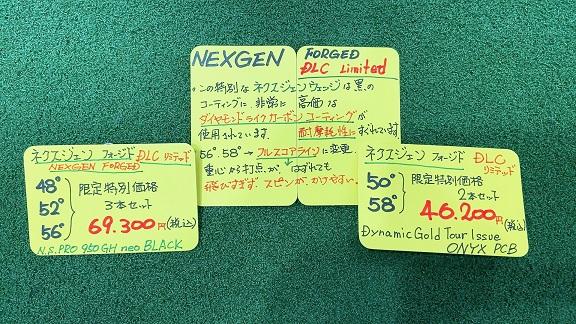 NEXGEN FORGED
DLC Limited
この特別な ネクスジェンウェッジは黒の
コーティングに、非常に 高価な
ダイヤモンドライクカーボンコーティングが
使用されています。耐摩耗性にすぐれています。
56°.58°→フルスコアラインに変更。
重心から打点が、はずれても
飛びすぎず、スピンが、かけやすい。
ネクスジェン フォージド DLC リミテッド
NEXGEN FORGED
48°
52°
56°
限定特別価格
3本セット
69.300円(税込)
N.S.PRO 950GH neo BLACK
ネクスジェン フォージド DLC
リミテッド
50°
58°
限定特別価格
2本セット
46.200円(税込)
Dynamic Gold Tour Issue
ONYX PCB